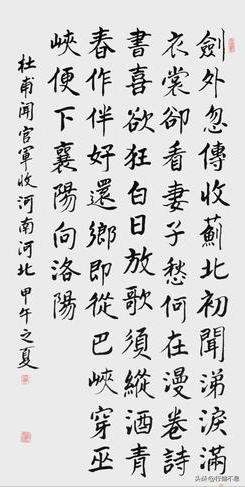 劍外忽傳收薊北初聞涕淚滿
衣裳卻看妻子愁何在漫卷詩
書喜欲狂白日放歌須縱酒青
春作伴好還鄉即從巴峽穿巫
峽便下襄陽向洛陽
杜甫聞官軍收河南河北 甲午之夏
头条@行循不息